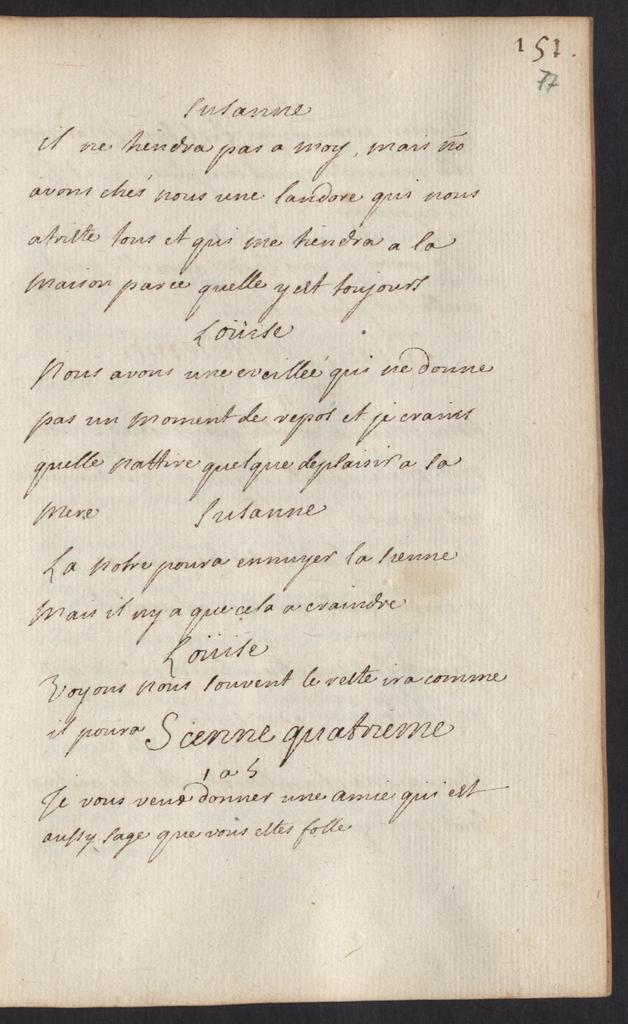 151.
77
Susanne
il ne tiendra pas a moy, mais no
avons chés nous une landore qui nous
atriste tous et qui me tiendra a la
maison parce quelle y est toujours
Loüise
Nous avons une eveillée qui ne donne
pas un moment de repos et je crains
quelle nattire quelque deplaisir a sa
mere Susanne
La notre poura ennuyer la sienne
Mais il ny a que cela a craindre
Loüise
Voyons nous souvent le reste ira comme
il poura Scenne quatrieme
1 a 5
Je vous veus donner une amie qui est
aussy sage que vous estes folle